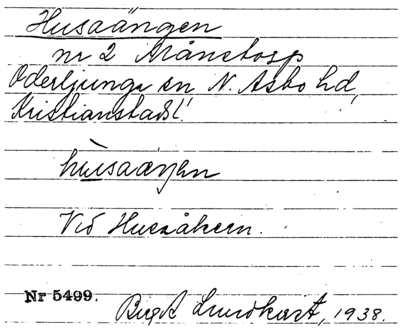 Husaängen
nr 2 Månstorp
Oderljunga sn N. Åsbo hd,
Kristianstads l.
hùsaäŋen
Vid Husåkern.
Nr 5499.
Birgit Lundkvist, 1938.